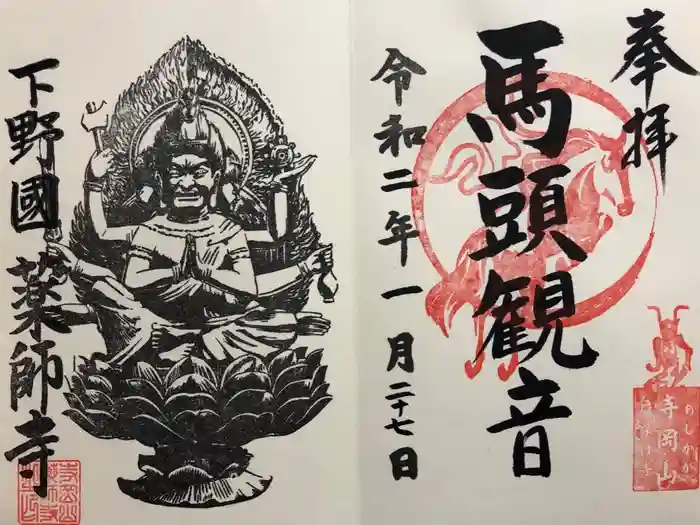 奉拝
馬頭観音
令和二年一月二十七日
下野國 薬師寺